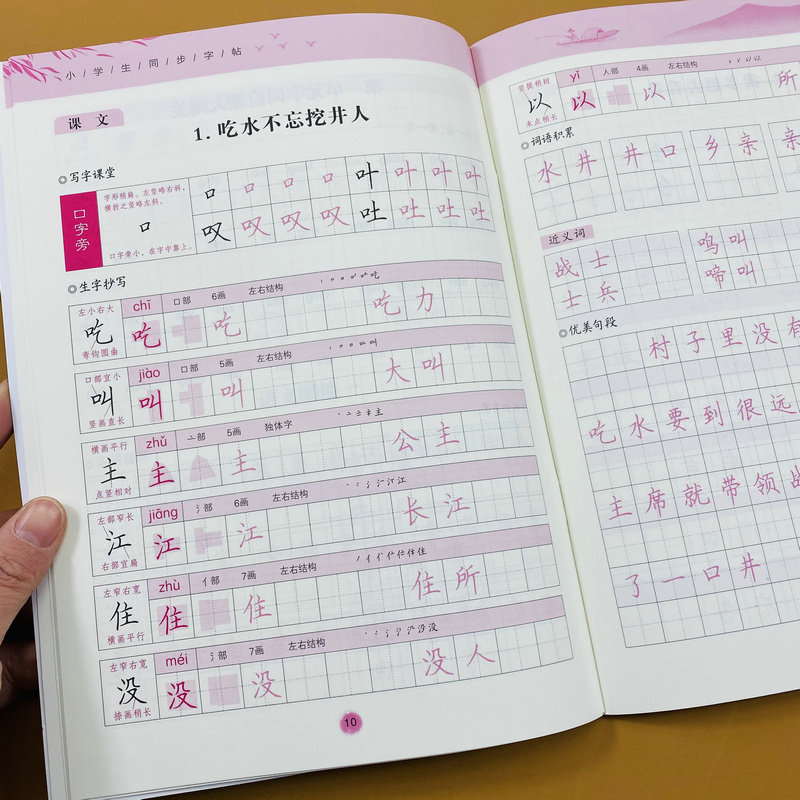 小/学/生/同/步/字/帖
课 文
1.吃水不忘挖井人
◎写字课堂
口字旁
口
字形稍扁。左竖略右斜，
横折之竖略左斜。
口字旁小，在字中靠上。
口 口 口 口 叶 叶 叶 叶
叹 叹 叹 叹 吐 吐 吐 吐
◎生字抄写
左小右大 chī 口部 6画 左右结构
吃 吃 吃 吃力
弯钩圆曲
口部宜小 jiào 口部 5画 左右结构
叫 叫 叫 大叫
竖画直长
横画平行 zhǔ 亠部 5画 独体字
主 主 主 公主
点竖相对
左部窄长 jiāng 氵部 6画 左右结构
江 江 江 长江
右部宜扁
左窄右宽 zhù 亻部 7画 左右结构
住 住 住 住所
横画平行
左窄右宽 méi 氵部 7画 左右结构
没 没 没 没人
捺画稍长
10
竖提稍短 yǐ 人部 4画 左右结构
以 以 以 所
末点稍长
◎词语积累
水井 井口 乡亲 亲
近义词
战士 鸣叫
士兵 啼叫
◎优美句段
村子里没有
吃水要到很远
主席就带领战
了一口井